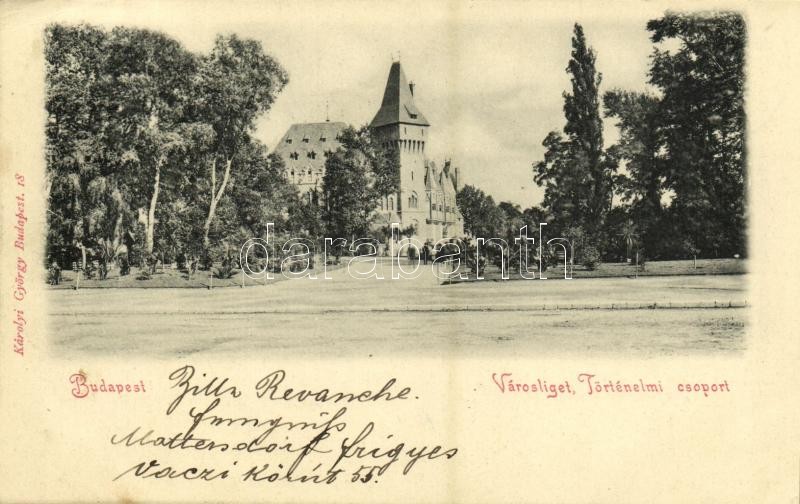 Károlyi György Budapest. 18
darabanth
Budapest
Városliget, Történelmi csoport
Zilla Revanche.
Mattersdorf frigyes
Vaczi körút 55.